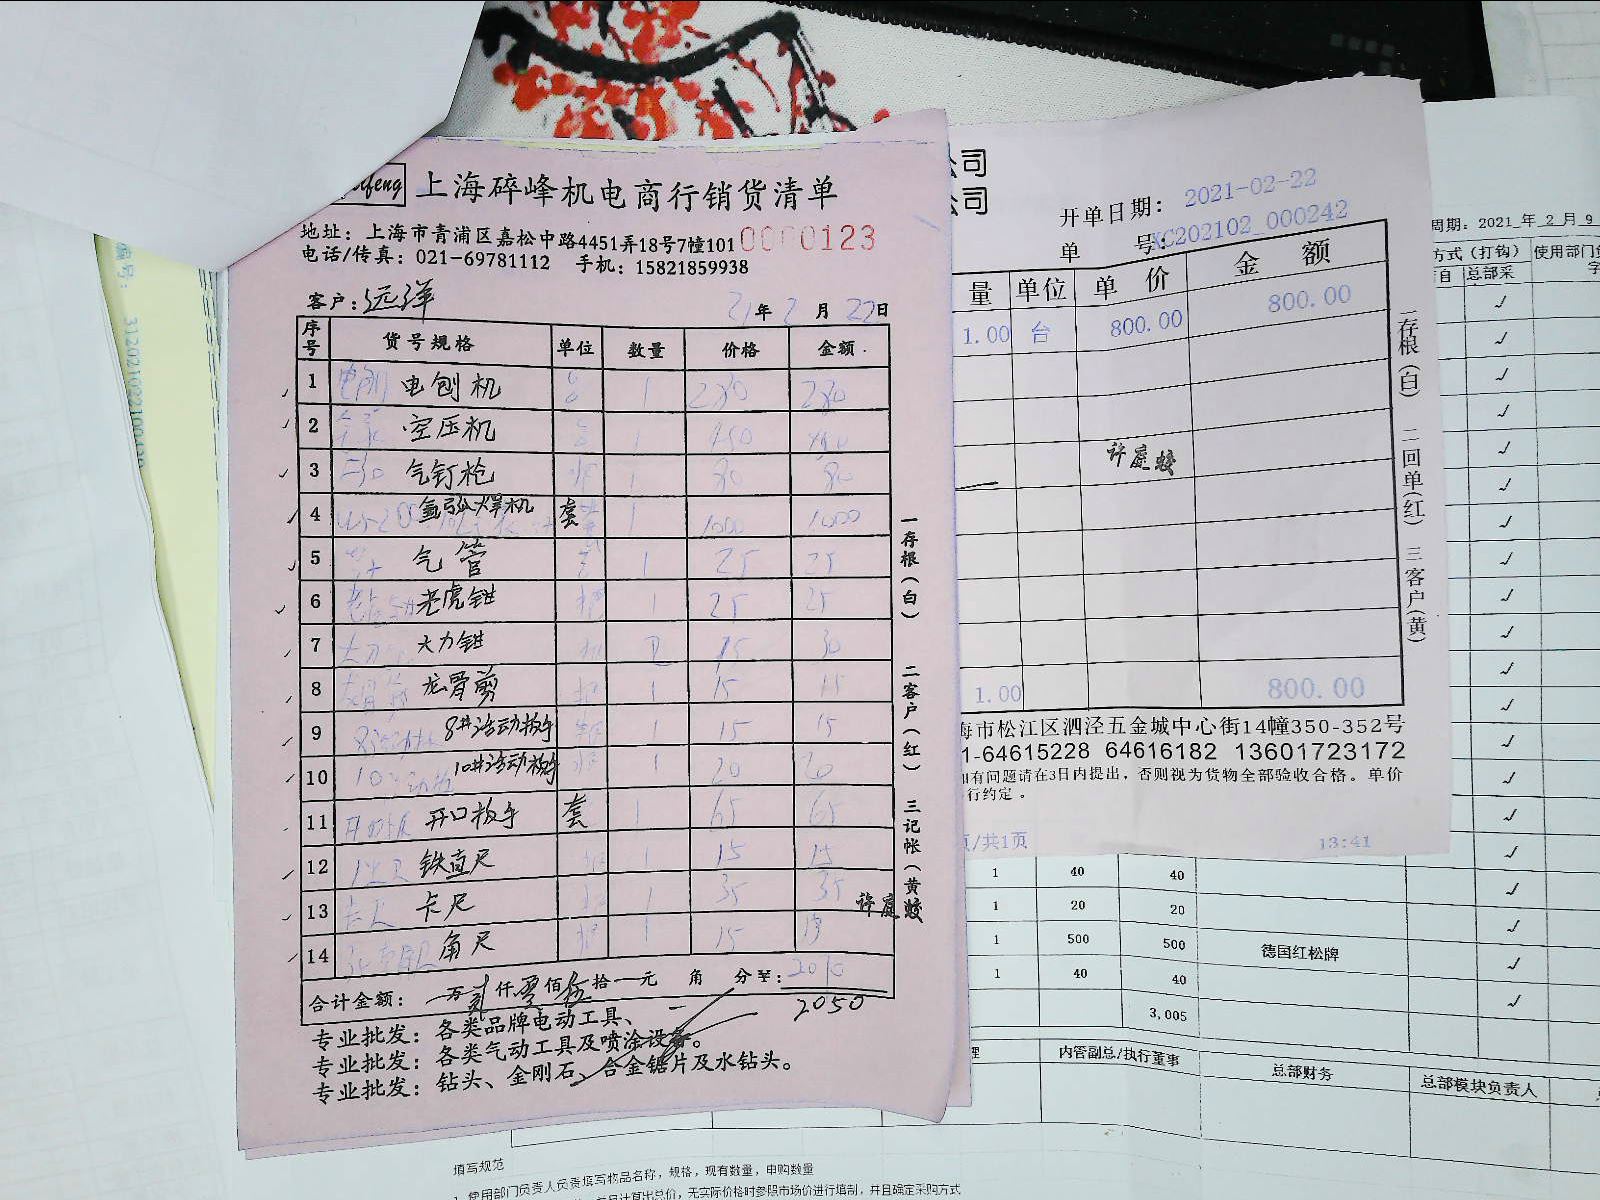 上海碎峰机电商行销货清单
地址：上海市青浦区嘉松中路4451弄18号7幢101 0000123
电话/传真：021-69781112 手机：15821859938
客户：远洋 21年2月22日
序号 货号规格 单位 数量 价格 金额
1 电刨机 台 1 280 280
2 空压机 台 1 450 450
3 气钉枪 把 1 80 80
4 氩弧焊机 套 1 1000 1000
5 气管 1 25 25
6 老虎钳 把 1 25 25
7 大力钳 把 2 15 30
8 龙骨剪 把 1 15 15
9 8#活动扳手 把 1 15 15
10 10#活动扳手 把 1 20 20
11 开口扳手 套 1 65 65
12 铁直尺 把 1 15 15
13 卡尺 把 1 35 35
许庭蛟
14 角尺 把 1 15 15
合计金额：万贰仟零佰伍拾元 角 分
2050
专业批发：各类品牌电动工具、
专业批发：各类气动工具及喷涂设备。
专业批发：钻头、金刚石、合金锯片及水钻头。
一存根（白） 二客户（红） 三记帐（黄）
公司
公司
开单日期：2021-02-22
单号：XC202102_000242
量 单位 单价 金额
1.00 台 800.00 800.00
许庭蛟
1.00 800.00
海市松江区泗泾五金城中心街14幢350-352号
1-64615228 64616182 13601723172
如有问题请在3日内提出，否则视为货物全部验收合格。单价
行约定。
页/共1页 13:41
一存根（白） 二回单（红） 三客户（黄）
周期：2021年2月9
方式（打钩） 使用部门负
自 总部采 字
1 40 40
1 20 20
1 500 500 德国红松牌
1 40 40
3,005
理 内管副总/执行董事 总部财务 总部模块负责人
填写规范
1、使用部门负责人负责填写物品名称，规格，现有数量，申购数量
计算出总价，无实际价格时参照市场价进行填制，并且确定采购方式